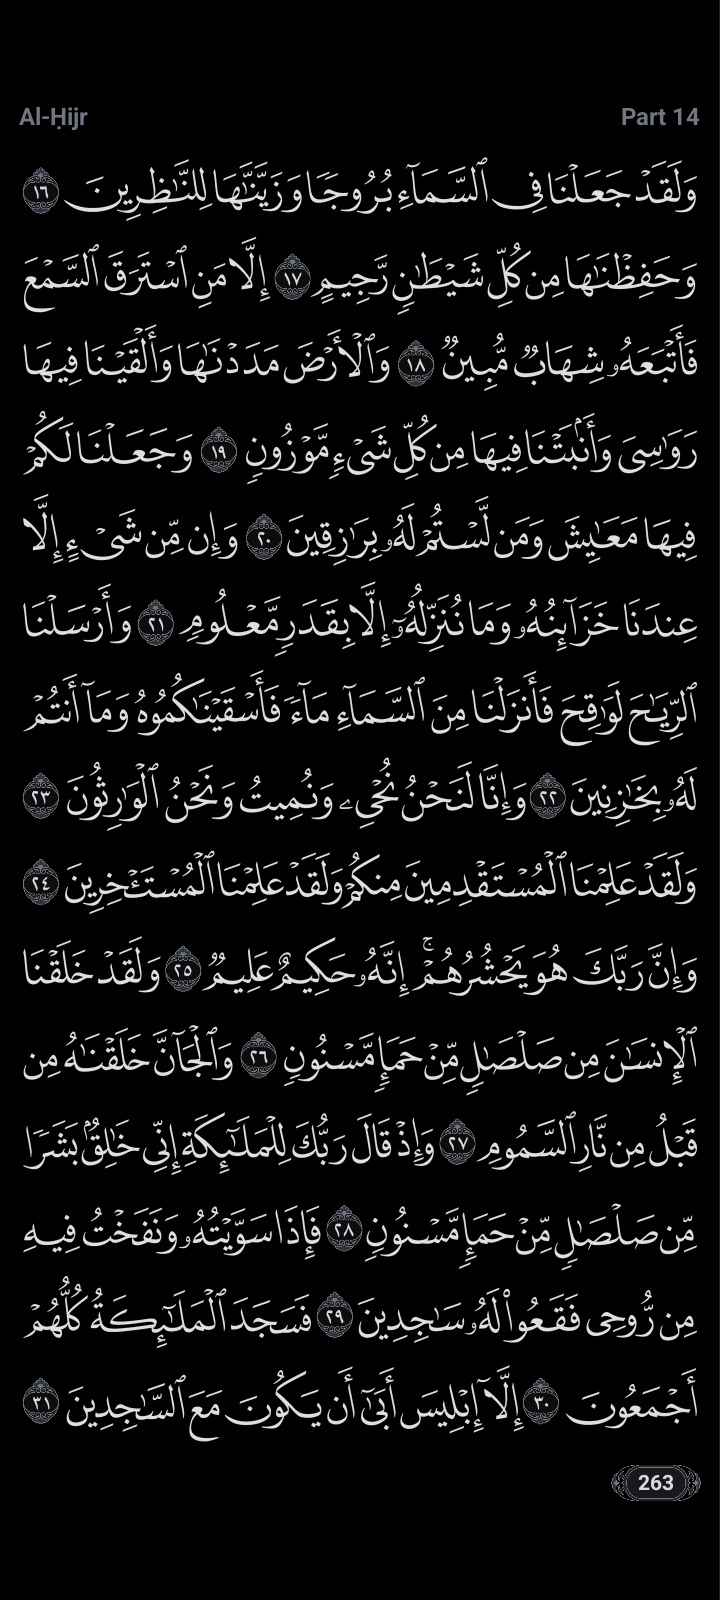 Al-Ḥijr Part 14
وَلَقَدْ جَعَلْنَا فِى ٱلسَّمَآءِ بُرُوجًا وَزَيَّنَّٰهَا لِلنَّٰظِرِينَ ١٦
وَحَفِظْنَٰهَا مِن كُلِّ شَيْطَٰنٍ رَّجِيمٍ ١٧ إِلَّا مَنِ ٱسْتَرَقَ ٱلسَّمْعَ
فَأَتْبَعَهُۥ شِهَابٌ مُّبِينٌ ١٨ وَٱلْأَرْضَ مَدَدْنَٰهَا وَأَلْقَيْنَا فِيهَا
رَوَٰسِىَ وَأَنۢبَتْنَا فِيهَا مِن كُلِّ شَىْءٍ مَّوْزُونٍ ١٩ وَجَعَلْنَا لَكُمْ
فِيهَا مَعَٰيِشَ وَمَن لَّسْتُمْ لَهُۥ بِرَٰزِقِينَ ٢٠ وَإِن مِّن شَىْءٍ إِلَّا
عِندَنَا خَزَآئِنُهُۥ وَمَا نُنَزِّلُهُۥٓ إِلَّا بِقَدَرٍ مَّعْلُومٍ ٢١ وَأَرْسَلْنَا
ٱلرِّيَٰحَ لَوَٰقِحَ فَأَنزَلْنَا مِنَ ٱلسَّمَآءِ مَآءً فَأَسْقَيْنَٰكُمُوهُ وَمَآ أَنتُمْ
لَهُۥ بِخَٰزِنِينَ ٢٢ وَإِنَّا لَنَحْنُ نُحْىِۦ وَنُمِيتُ وَنَحْنُ ٱلْوَٰرِثُونَ ٢٣
وَلَقَدْ عَلِمْنَا ٱلْمُسْتَقْدِمِينَ مِنكُمْ وَلَقَدْ عَلِمْنَا ٱلْمُسْتَـْٔخِرِينَ ٢٤
وَإِنَّ رَبَّكَ هُوَ يَحْشُرُهُمْ ۚ إِنَّهُۥ حَكِيمٌ عَلِيمٌ ٢٥ وَلَقَدْ خَلَقْنَا
ٱلْإِنسَٰنَ مِن صَلْصَٰلٍ مِّنْ حَمَإٍ مَّسْنُونٍ ٢٦ وَٱلْجَآنَّ خَلَقْنَٰهُ مِن
قَبْلُ مِن نَّارِ ٱلسَّمُومِ ٢٧ وَإِذْ قَالَ رَبُّكَ لِلْمَلَٰٓئِكَةِ إِنِّى خَٰلِقٌۢ بَشَرًا
مِّن صَلْصَٰلٍ مِّنْ حَمَإٍ مَّسْنُونٍ ٢٨ فَإِذَا سَوَّيْتُهُۥ وَنَفَخْتُ فِيهِ
مِن رُّوحِى فَقَعُوا۟ لَهُۥ سَٰجِدِينَ ٢٩ فَسَجَدَ ٱلْمَلَٰٓئِكَةُ كُلُّهُمْ
أَجْمَعُونَ ٣٠ إِلَّآ إِبْلِيسَ أَبَىٰٓ أَن يَكُونَ مَعَ ٱلسَّٰجِدِينَ ٣١
263